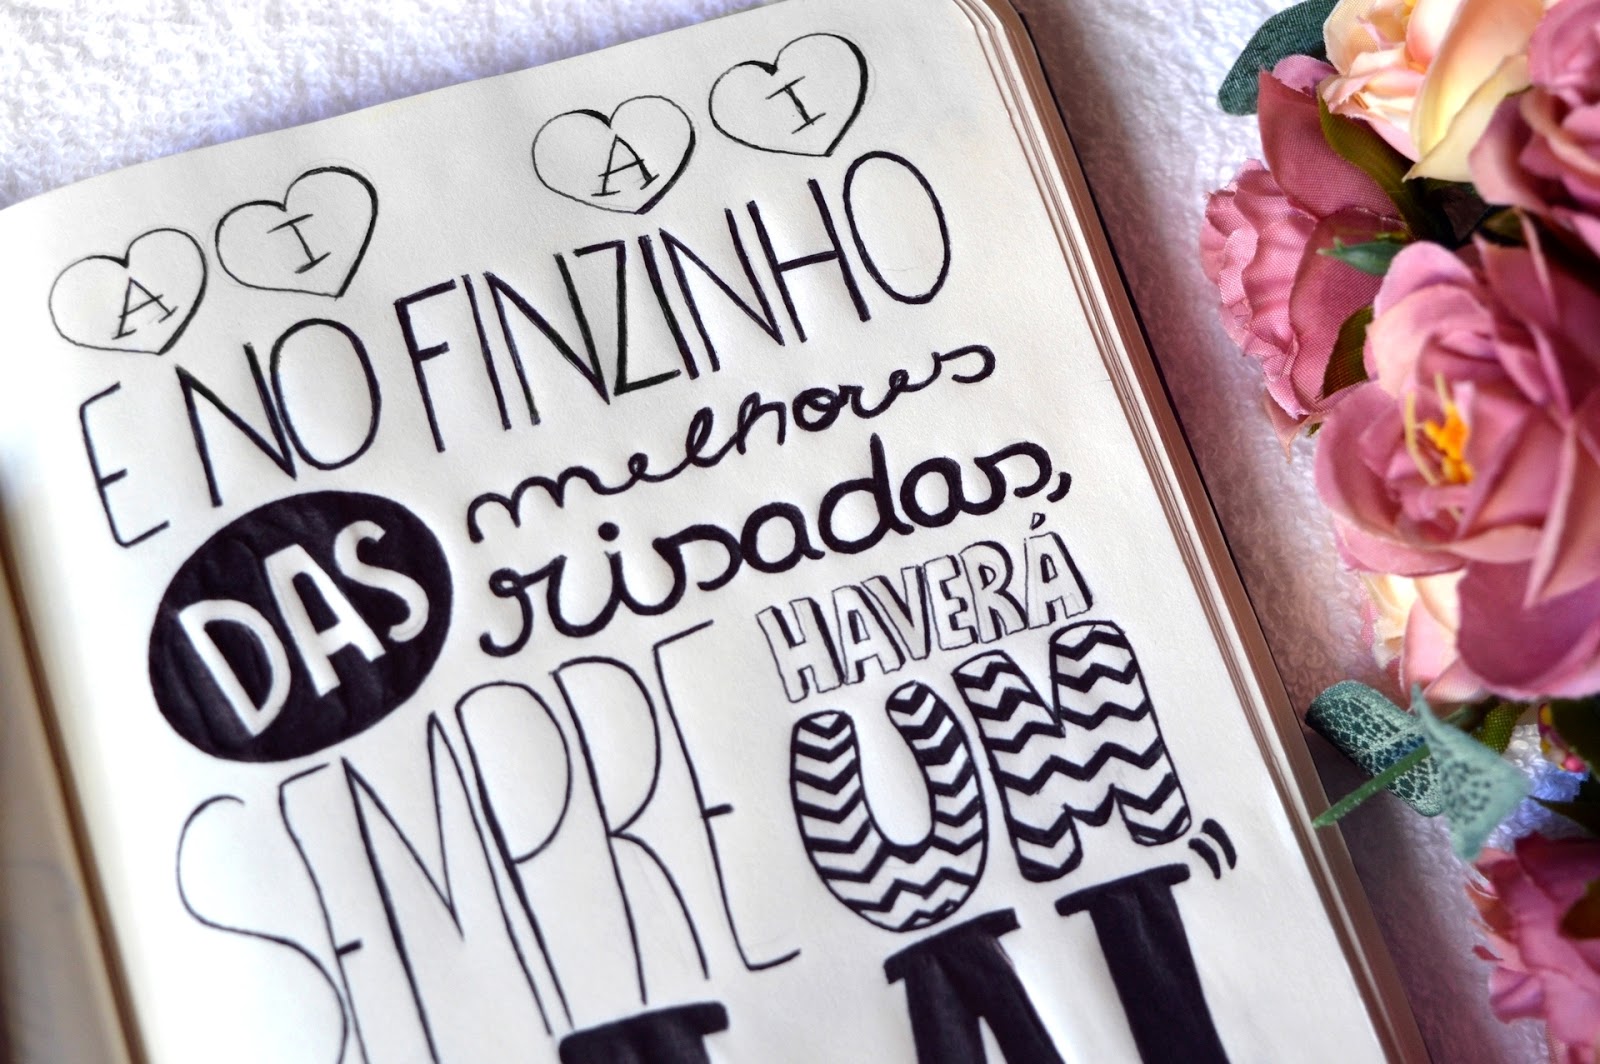 A I A I
E NO FINZINHO
DAS melhores
risadas,
SEMPRE HAVERÁ
UM "
AI